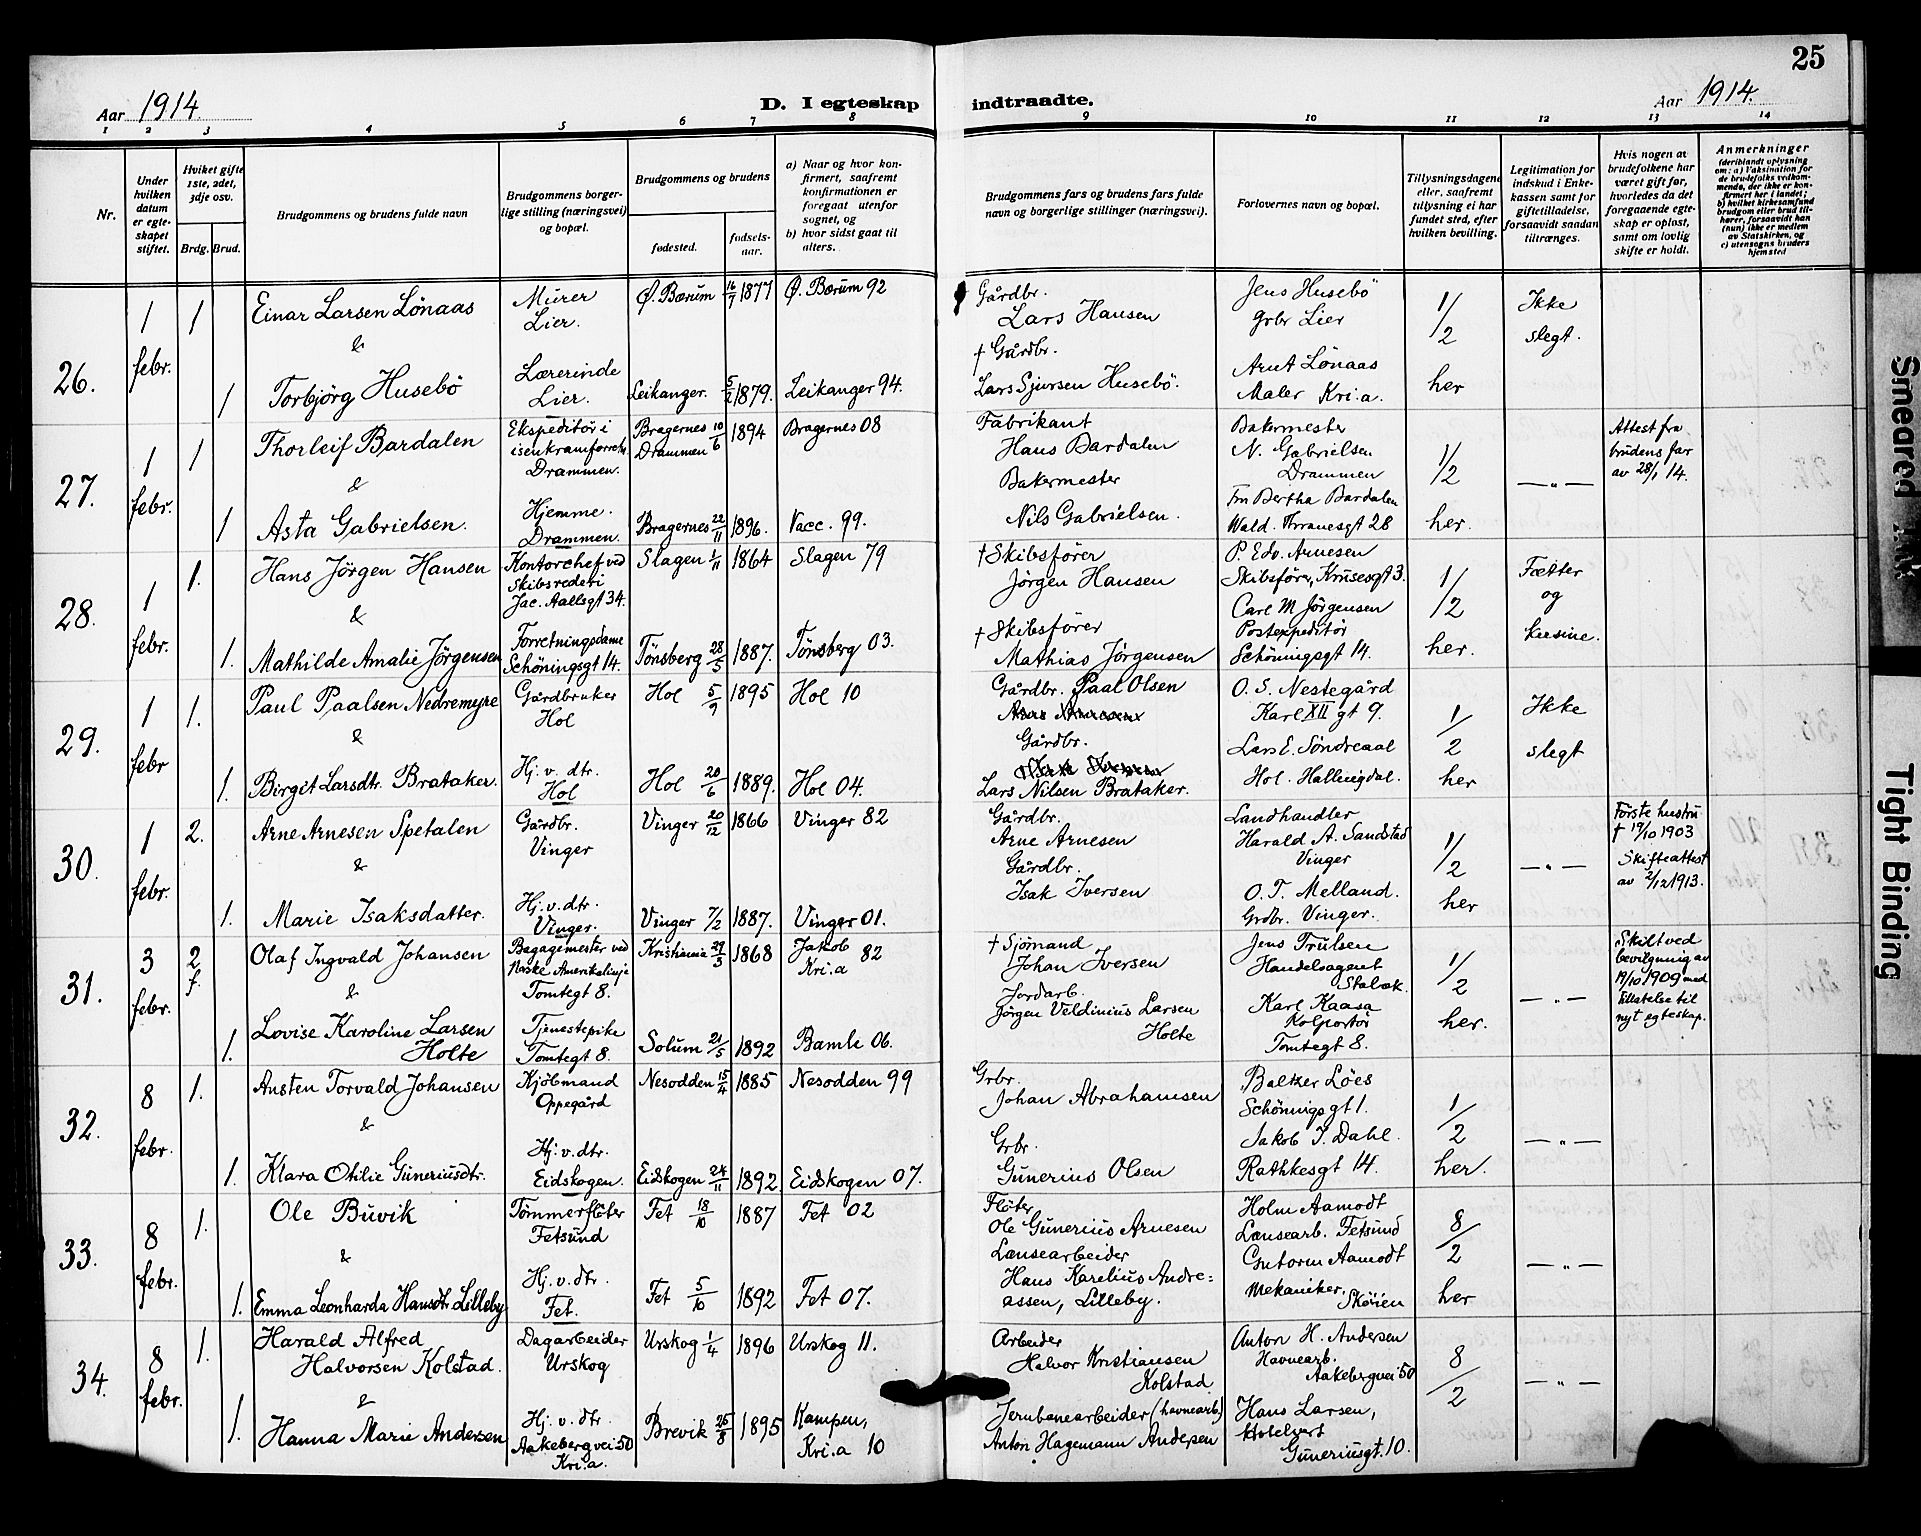 25
Aar 1914.
D. I egteskap indtraadte.
Aar 1914.
1 2 3 4 5 6 7 8 9 10 11 12 13 14
Nr.
Under hvilken datum er egteskapet stiftet.
Hviket gifte 1ste, 2det, 3dje osv.
Brdg. Brud.
Brudgommens og brudens fulde navn
Brudgommens borgerlige stilling (næringsvei) og bopæl.
Brudgommens og brudens
fødested. fødselsaar.
a) Naar og hvor konfirmert, saafremt konfirmationen er foregaat utenfor sognet, og
b) hvor sidst gaat til alters.
Brudgommens fars og brudens fars fulde navn og borgerlige stillinger (næringsvei).
Forlovernes navn og bopæl.
Tillysningsdagene eller, saafremt tillysning ei har fundet sted, efter hvilken bevilling.
Legitimation for indskud i Enkekassen samt for giftetilladelse, forsaavidt saadan tiltrænges.
Hvis nogen av brudefolkene har været gift før, hvorledes da det foregaaende egteskap er opløst, samt om lovlig skifte er holdt.
Anmerkninger
(deriblandt oplysning om: a) Vaksination for de brudefolks vedkommende, der ikke er konfirmert her i landet; b) hvilket kirkesamfund brudgom eller brud tilhører, forsaavidt han (hun) ikke er medlem av Statskirken, og c) utensogns bruders hjemsted
26. 1 febr. 1 Einar Larsen Lønaas Murer Lier. Ø. Bærum 16/7 1877 Ø. Bærum 92
&
1 Torbjörg Husebö Lærerinde Lier. Leikanger. 5/2 1879. Leikanger 94.
Gårdbr. Lars Hansen
† Gårdbr. Lars Sjursen Husebö.
Jens Husebö Grbr Lier
Arnt Lønaas Maler Kri.a.
1/2 her
Ikke slegt.
27. 1 febr. 1 Thorleif Bardalen Ekspeditör i isenkramforretn. Drammen. Bragernes Drammen 10/6 1894 Bragernes 08
&
1 Asta Gabrielsen. Hjemme. Drammen. Bragernes 22/11 1896. Vacc. 99.
Fabrikant Hans Bardalen
Bakermester Nils Gabrielsen.
Bakermester N. Gabrielsen Drammen
Fru Bertha Bardalen Wald. Thranesgt 28
1/2 her.
— " —
Attest fra brudens far av 28/1 14.
28. 1 febr. 1. Hans Jörgen Hansen Kontorchef ved Skibsrederi Jac. Aallsgt 34. Slagen 1/11 1864 Slagen 79
&
1. Mathilde Amalie Jörgensen Forretningsdame Schöningsgt 14. Tönsberg 28/5 1887. Tönsberg 03.
† Skibsförer Jörgen Hansen
† Skibsförer Mathias Jörgensen
P. Edv. Arnesen Skibsförer, Krusesgt 3.
Carl M Jörgensen Postexpeditör Schöningsgt 14.
1/2 her.
Fætter og kusine.
29. 1 febr 1. Paul Paalsen Nedremyre Gårdbruker Hol Hol 5/9 1895 Hol 10
&
1. Birgit Larsdtr. Brataker. Hj. v. dtr. Hol Hol 20/6 1889. Hol 04.
Gårdbr. Paal Olsen
Gårdbr.
Lars Nilsen Brataker.
O. S. Nestegård Karl XII gt 9.
Lars E. Söndreaal Hol. Hallingdal.
1/2 her
Ikke slegt
30. 1 febr. 2. Arne Arnesen Spetalen Gårdbr. Vinger Vinger 20/12 1866 Vinger 82
&
1. Marie Isaksdatter. Hj. v. dtr. Vinger. Vinger 7/2 1887. Vinger 01.
Gårdbr. Arne Arnesen
Gårdbr. Isak Iversen
Landhandler Harald A. Sandstad Vinger
O. T. Melland. Grdbr. Vinger.
1/2 her
— " —
Förste hustru † 19/10 1903
Skifteattest av 2/12 1913.
31. 3 febr. 2 f. Olaf Ingvald Johansen Bagagemester ved Norske Amerikalinje Tomtegt 8. Kristiania 29/3 1868 Jakob Kri.a 82
&
1. Lovise Karoline Larsen Holte Tjenestepike Tomtegt 8. Solum 21/5 1892 Bamle 06.
† Sjömand Johan Iversen
Jordarb. Jörgen Veldinius Larsen Holte
Jens Trulsen Handelsagent
Karl Kaasa Kolportör Tomtegt 8.
1/2 her.
— " —
Skilt ved bevilgning av 19/10 1909 med tillatelse til nyt egteskap.
32. 8 febr. 1. Austen Torvald Johansen Kjöbmand Oppegård Nesodden 15/4 1885 Nesodden 99
&
1. Klara Otilie Guneriusdtr. Hj. v. dtr. Eidskogen. Eidskogen 24/11 1892. Eidskogen 07.
Grbr. Johan Abrahamsen
Grbr. Gunerius Olsen
Baltzer Löes Schönningsgt 1.
Jakob I. Dahl. Rathkesgt 14.
1/2 her.
— " —
33. 8 febr. 1. Ole Buvik Tömmerflöter Fetsund Fet 18/10 1887 Fet 02
&
1. Emma Leonharda Hansdtr Lilleby Hj. v. dtr. Fet. Fet 5/10 1892 Fet 07.
Flöter Ole Gunerius Arnesen
Lænsearbeider Hans Karelius Andreassen, Lilleby.
Holm Aamodt Lænsearb. Fetsund
Guttorm Aamodt Mekaniker, Sköien
8/2 her
— " —
34. 8 febr. 1. Harald Alfred Halvorsen Kolstad. Dagarbeider Urskog Urskog 1/4 1896 Urskog 11.
&
1. Hanna Marie Andersen Hj. v. dtr. Aakebergvei 50 Kri.a. Brevik 25/8 1895 Kampen, Kri.a 10
Arbeider Halvor Kristiansen Kolstad
Jernbanearbeider (havnearb.) Anton Hagemann Andersen
Anton H. Andersen Havnearb. Aakebergvei 50
Hans Larsen, Hotelvert Guneriusgt. 10.
8/2
— " —
Smeared Ink
Tight Binding